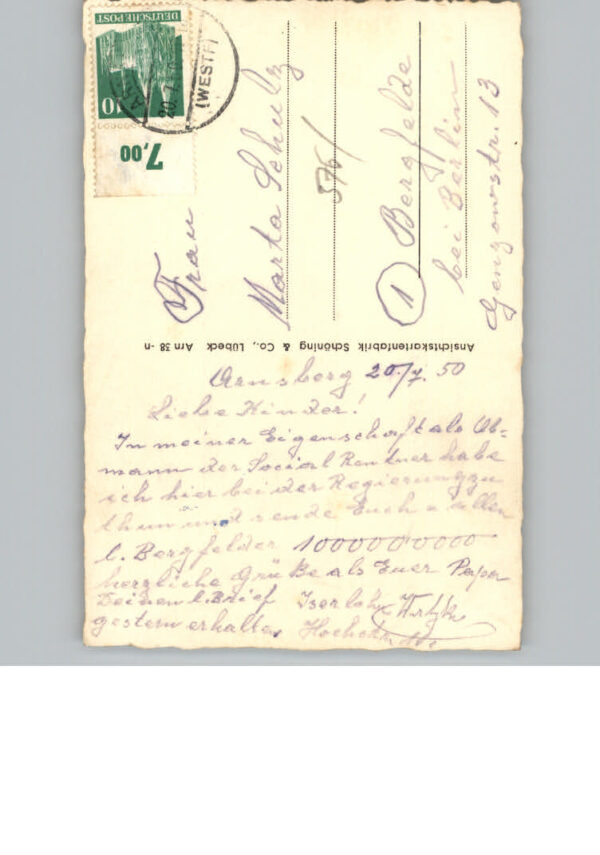 DEUTSCHE POST
10
7,00
(WESTF)
Frau
Marta Schulz
1 Bergfelde
bei Berlin
Genzowstr. 13
Ansichtskartenfabrik Schöning & Co., Lübeck Arn 38 -n
Arnsberg 20/7. 50
Liebe Kinder!
In meiner Eigenschaft als Ob-
mann der Social Rentner habe
ich hier bei der Regierung zu
thun und sende Euch u allen
l. Bergfelder 10000000000
herzliche Grüße als Euer Papa
Deinen l. Brief Iserlohn
gestern erhalten